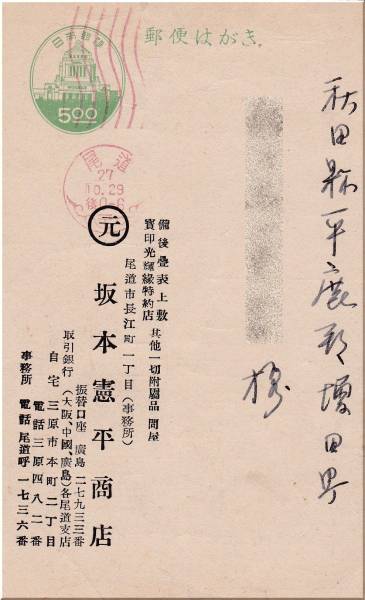 郵便はがき
日本郵便
5.00
尾道
27
10.29
後0-6
秋田縣平鹿郡増田町
様
備後疊表上敷 其他一切附屬品 問屋
寳印光輝縁特約店
尾道市長江町一丁目(事務所)
元 坂本憲平商店
振替口座 廣島 二七九三三番
取引銀行(大阪、中國、廣島)各尾道支店
自宅 三原市本町二丁目
電話 三原四八二番
事務所 電話 尾道呼 一七三六番